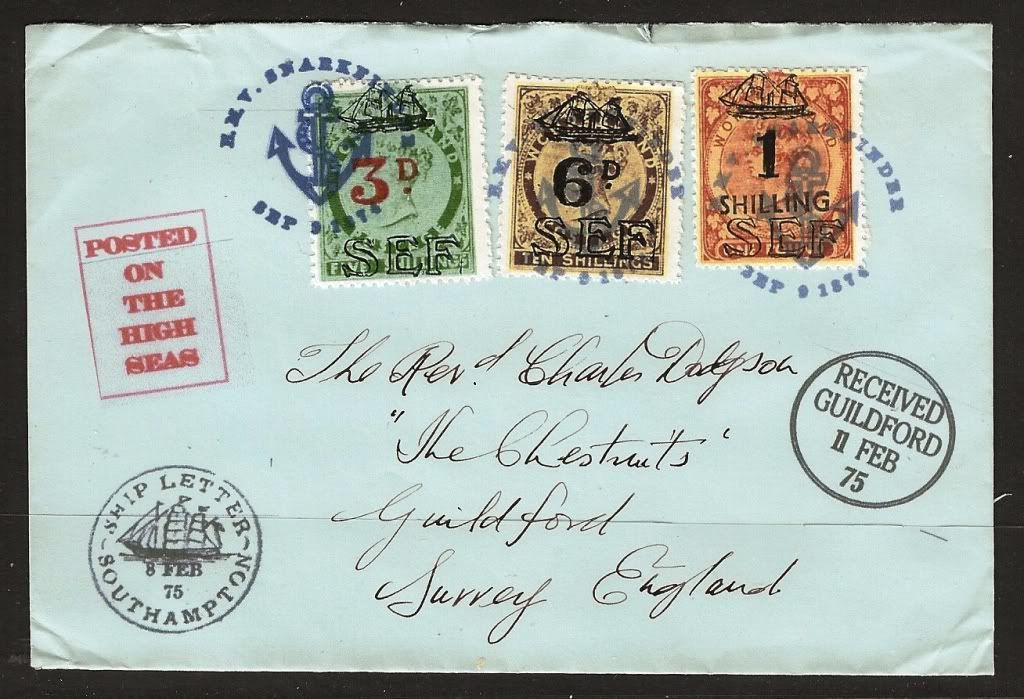 R.M.V. SNARKFINDER
SEP 9 1874
3D.
SEF
6D.
TEN SHILLINGS
SEF
1
SHILLING
SEF
SEP 9 1874
POSTED
ON
THE
HIGH
SEAS
The Revd. Charles Dodgson
"The Chestnuts"
Guildford
Surrey England
RECEIVED
GUILDFORD
11 FEB
75
SHIP LETTER
8 FEB
75
SOUTHAMPTON